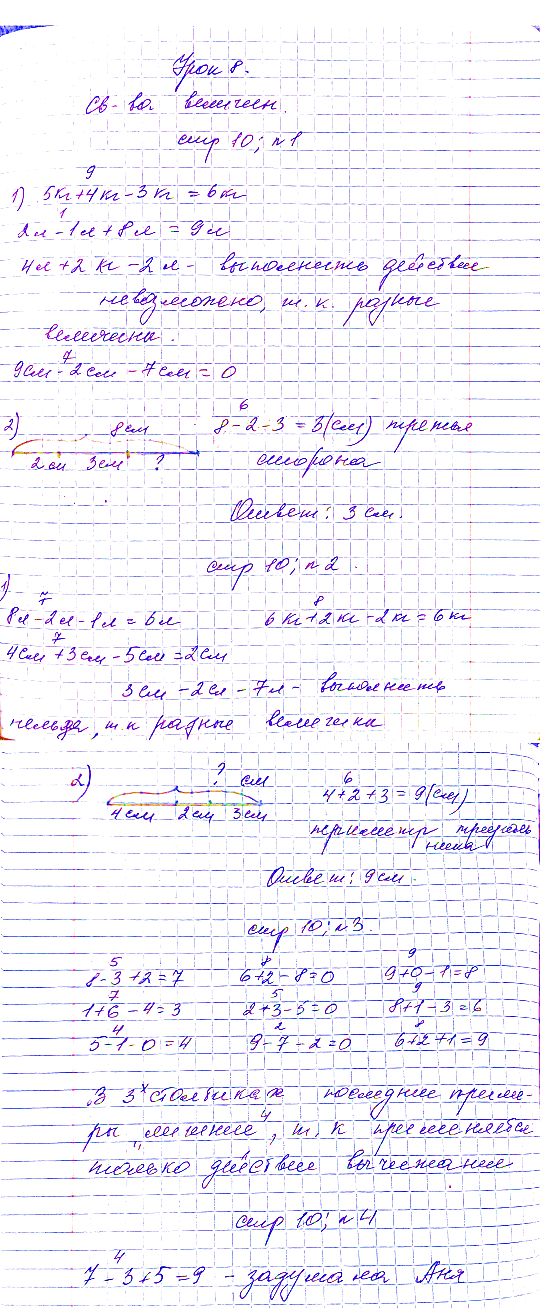 Урок 8.
Св-ва величин.
стр 10; n1
9
1) 5кг+4кг-3кг=6кг
1
2л-1л+8л=9л
4л+2кг-2л- выполнить действие
невозможно, т.к. разные
величины.
7
9см-2см-7см=0
2) 8см
2см 3см ?
6
8-2-3=3(см) третья
сторона
Ответ: 3см.
стр 10; n2.
1)
7
8л-2л-1л=6л
8
6кг+2кг-2кг=6кг
7
4см+3см-5см=2см
3см-2см-7л- выполнить
нельзя, т.к разные величины
2) ? см
4см 2см 3см
6
4+2+3=9(см)
периметр треуголь
ника
Ответ: 9см.
стр 10; n3.
5 8 9
8-3+2=7 6+2-8=0 9+0-1=8
7 5 9
1+6-4=3 2+3-5=0 8+1-3=6
4 2 8
5-1-0=4 9-7-2=0 6+2+1=9
В 3х столбиках последние приме-
ры „лишние", т.к применяется
только действие вычитания
стр 10; n4
4
7-3+5=9 - задумала Аня